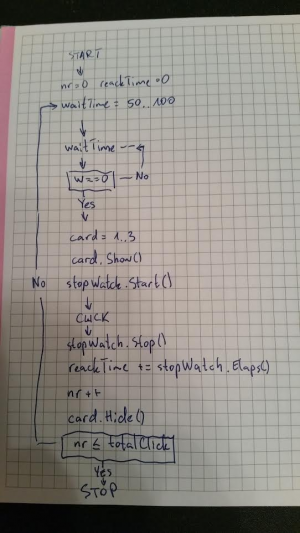 START
nr=0 reackTime=0
waitTime = 50..100
waitTime --
w==0 - No
Yes
card = 1..3
card.Show()
No
stopWatch.Start()
CLICK
stopWatch.Stop()
reackTime += stopWatch.Elaps()
nr ++
card.Hide()
nr ≤ totalClick
Yes
STOP